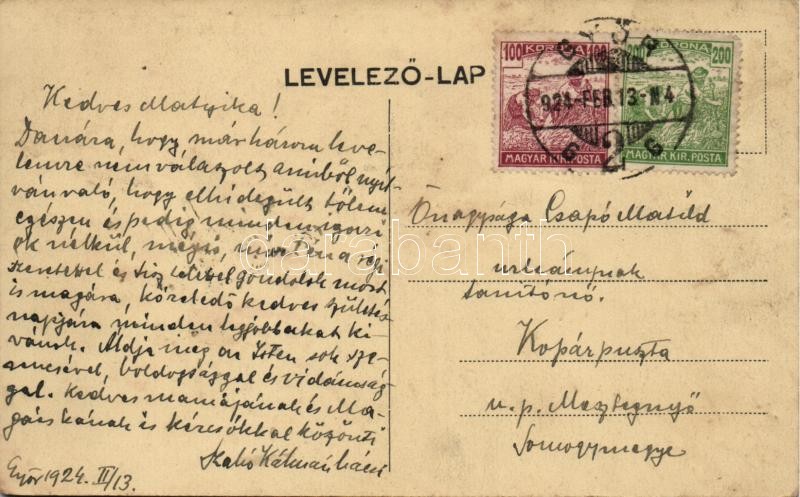 LEVELEZŐ-LAP
100 KORONA 100
MAGYAR KIR. POSTA
200 KORONA 200
MAGYAR KIR. POSTA
GYŐR
924-FEB.13-N4
Kedves Matyika!
Danára, hogy már három leve-
lemre nem válaszolt amiből nyil-
vánvaló, hogy elhidegült tőlem
egészen és pedig minden igazi
ok nélkül, mégis, mint én a régi
szeretettel és gondolok most
is magára, közeledő kedves születés
napjára minden legjobbakat ki-
vánok. Aldja meg az Isten sok sze-
rencsével, boldogsággal és vidámság-
gal. Kedves mamájának és Ma-
gácskának is kézcsókkal köszönti
Szabó Kálmán bácsi
Győr 1924. II/13.
Őnagysága Csapó Matild
urleánynak
tanítónő.
Kopárpuszta
u. p. Mesztegnyő
Somogymegye
darabanth